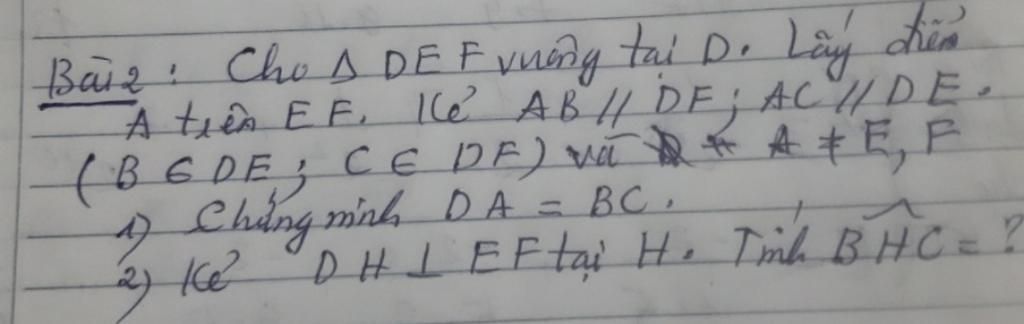 Bài 2: Cho Δ DEF vuông tại D. Lấy điểm
A trên EF. Kẻ AB // DF; AC // DE.
(B ∈ DE; C ∈ DF) và A ≠ E, F
1) Chứng minh DA = BC.
2) Kẻ DH ⊥ EF tại H. Tính \widehat{BHC} = ?